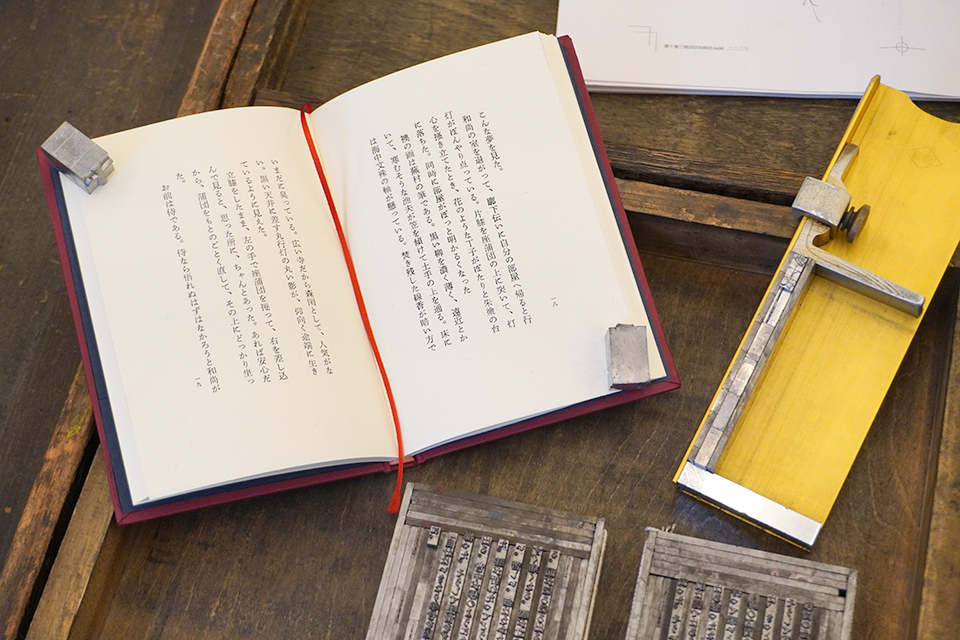 こんな夢を見た。
和尚の室を退がって、廊下伝いに自分の部屋へ帰ると行
灯がぼんやり点っている。片膝を座蒲団の上に突いて、灯
心を掻き立てたとき、花のような丁子がぱたりと朱塗の台
に落ちた。同時に部屋がぱっと明かるくなった
襖の画は蕪村の筆である。黒い柳を濃く薄く、遠近とか
いて、寒むそうな漁夫が笠を傾けて土手の上を通る。床に
は海中文殊の軸が懸っている。焚き残した線香が暗い方で
一八
いまだに臭っている。広い寺だから森閑として、人気がな
い。黒い天井に差す丸行灯の丸い影が、仰向く途端に生き
ているように見えた。
立膝をしたまま、左の手で座蒲団を捲って、右を差し込
んで見ると、思った所に、ちゃんとあった。あれば安心だ
から、蒲団をもとのごとく直して、その上にどっかり坐っ
た。
お前は侍である。侍なら悟れぬはずはなかろうと和尚が
一九